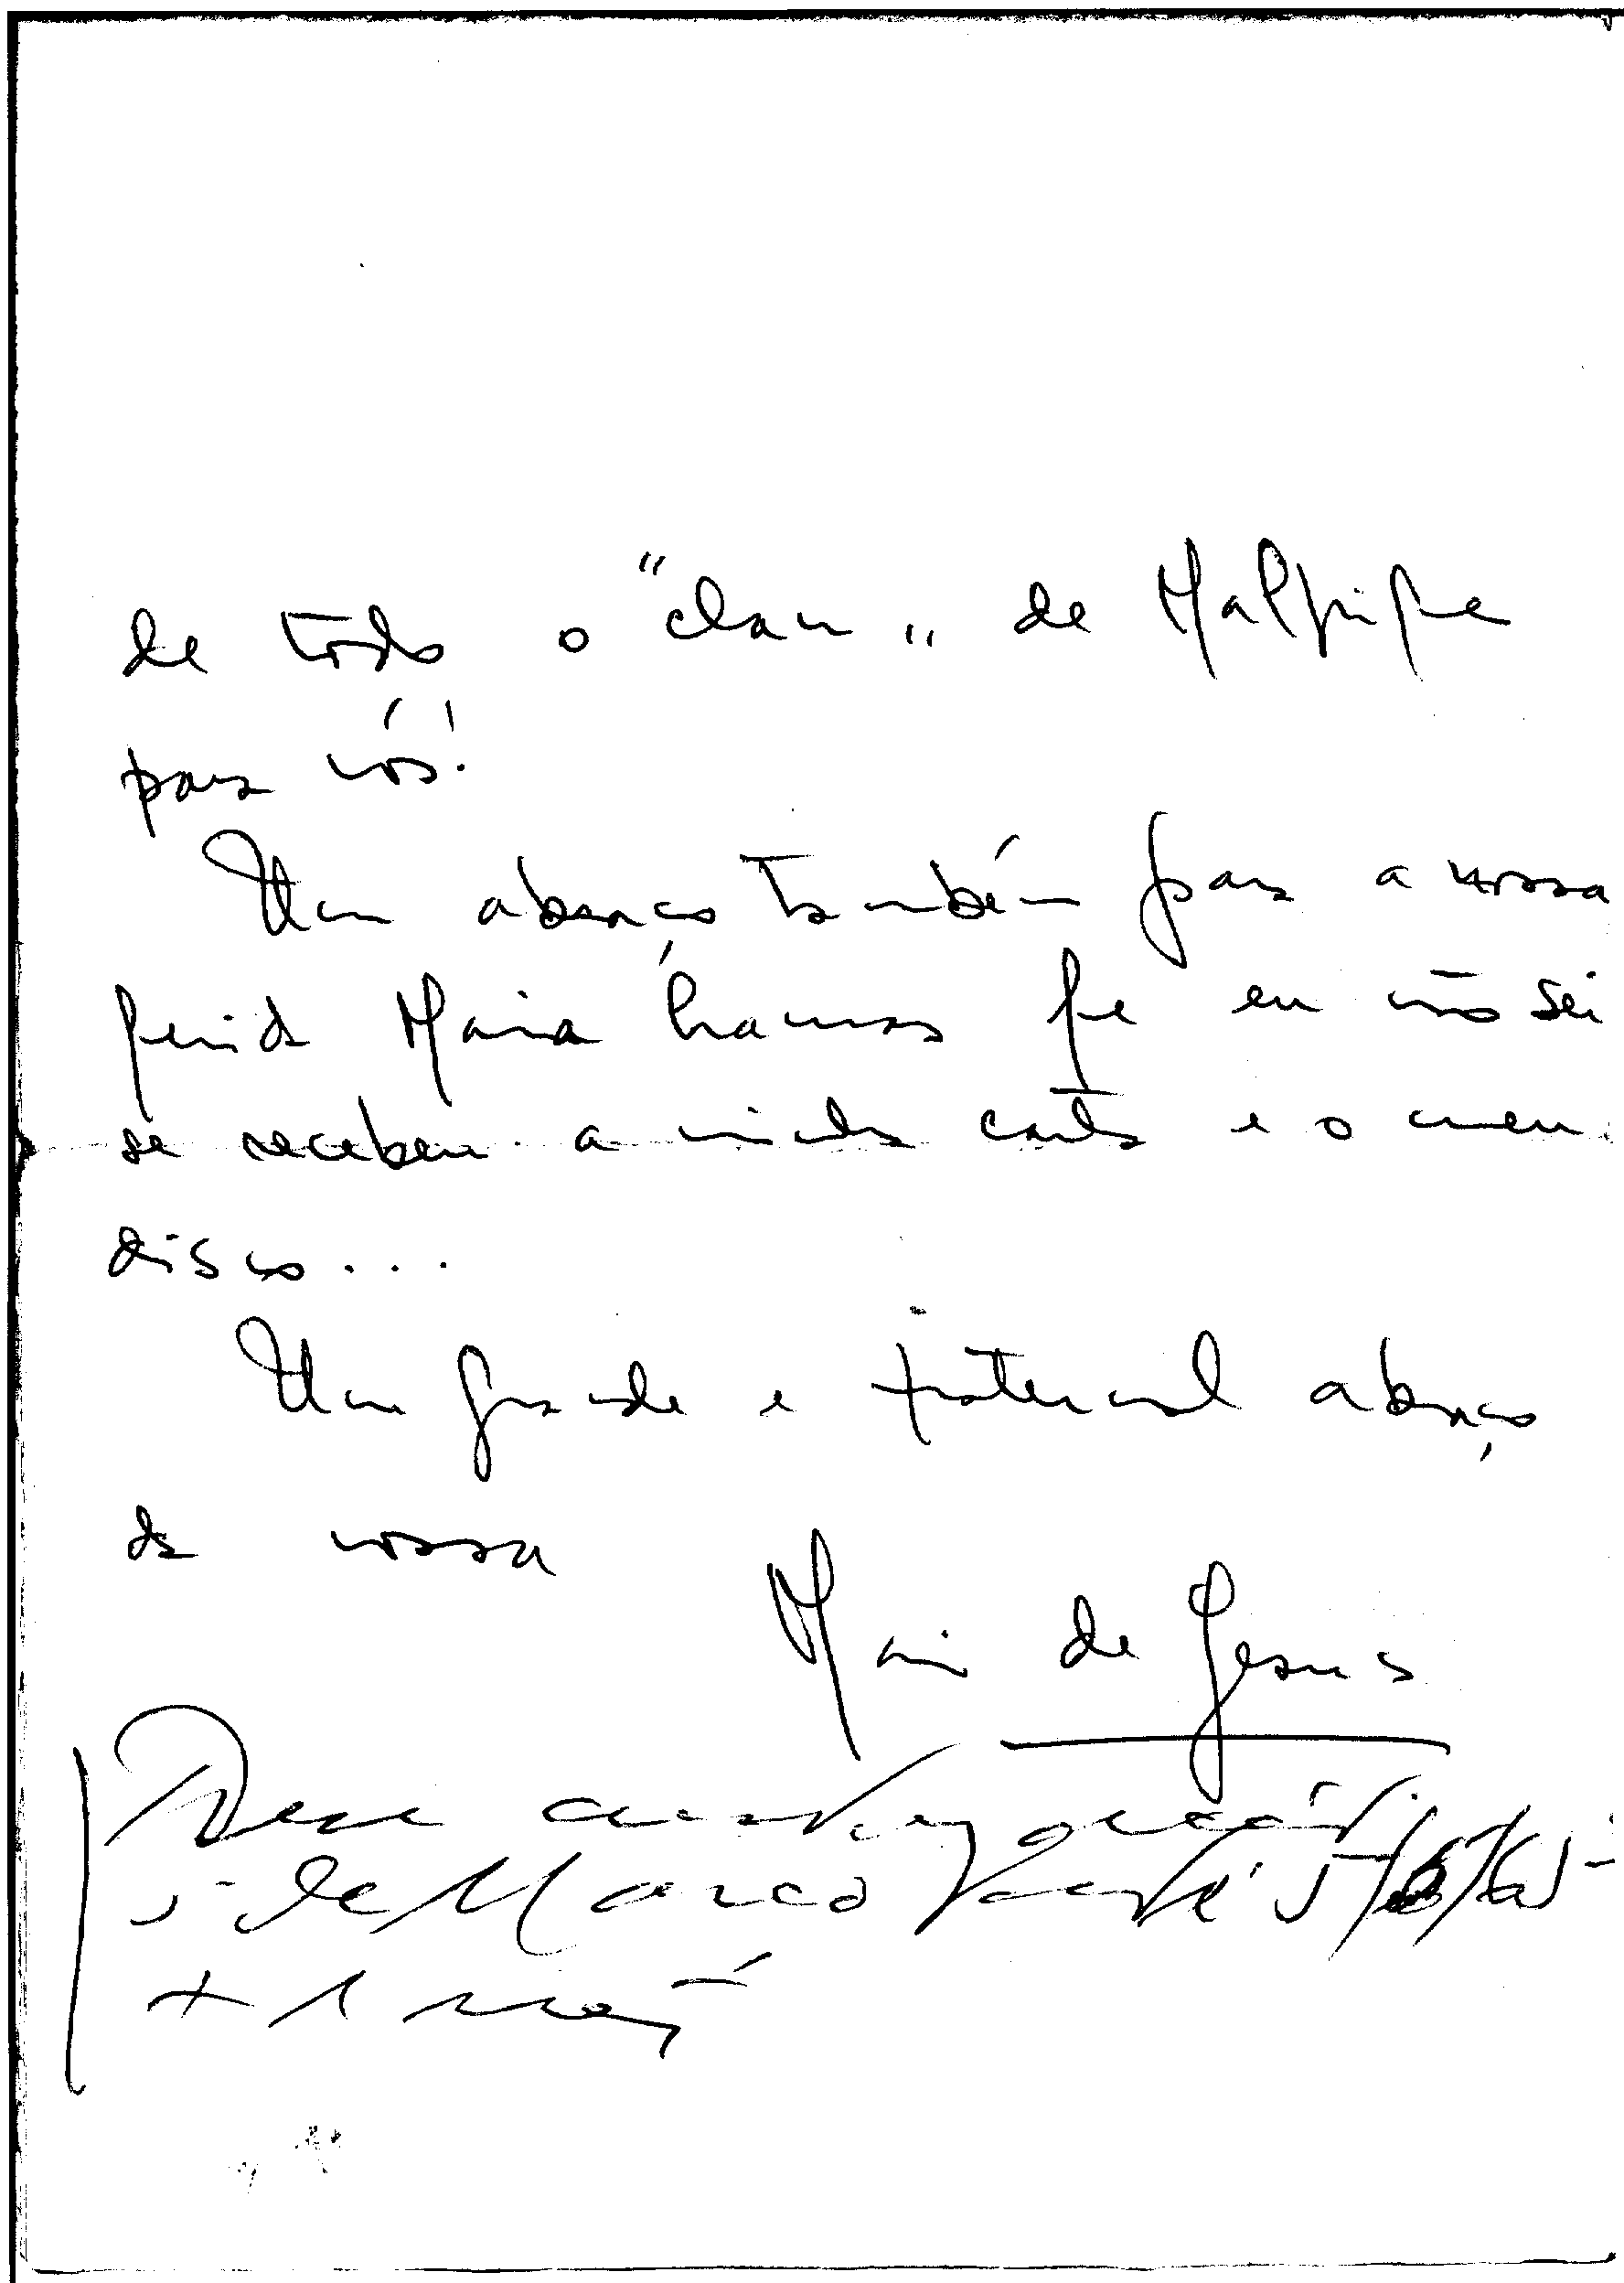 de todo o "clan" de Malpique
para vós!
Um abraço também para a nossa
querida Maria Ramos que eu não sei
se recebeu a minha carta e o meu
disco...
Um grande e fraternal abraço
da vossa
Maria de Jesus
de Março
+ 1 mês